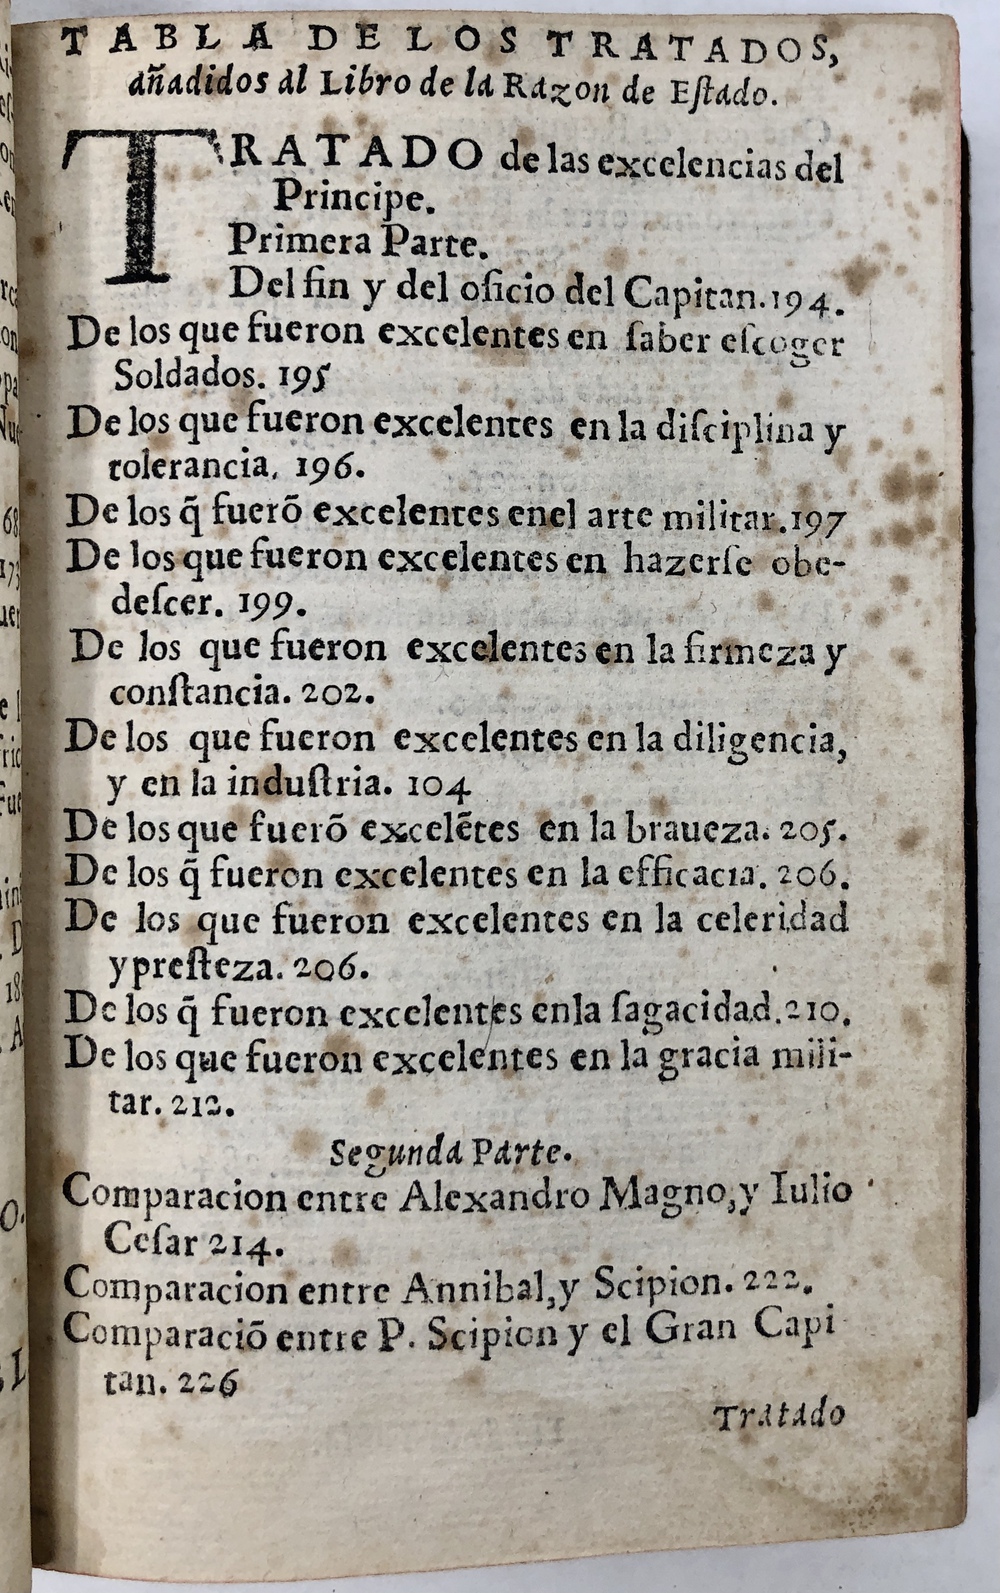 TABLA DE LOS TRATADOS,
añadidos al Libro de la Razon de Eſtado.
TRATADO de las excelencias del
Principe.
Primera Parte.
Del fin y del oficio del Capitan.194.
De los que fueron excelentes en ſaber eſcoger
Soldados. 195
De los que fueron excelentes en la diſciplina y
tolerancia. 196.
De los q̃ fuerõ excelentes enel arte militar.197
De los que fueron excelentes en hazerſe obe-
deſcer. 199.
De los que fueron excelentes en la firmeza y
conſtancia. 202.
De los que fueron excelentes en la diligencia,
y en la induſtria. 104
De los que fuerõ excelẽtes en la braueza. 205.
De los q̃ fueron excelentes en la efficacia. 206.
De los que fueron excelentes en la celeridad
y preſteza. 206.
De los q̃ fueron excelentes enla ſagacidad.210.
De los que fueron excelentes en la gracia mili-
tar. 212.
Segunda Parte.
Comparacion entre Alexandro Magno,y Iulio
Ceſar 214.
Comparacion entre Annibal,y Scipion. 222.
Comparaciõ entre P. Scipion y el Gran Capi
tan. 226
Tratado